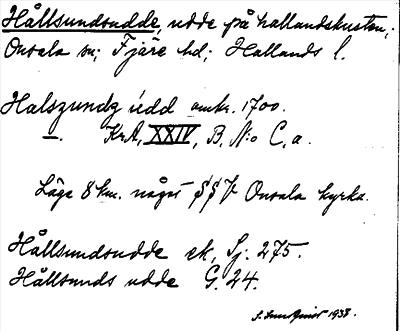 Hållsundsudde, udde på hallandskusten,;
Onsala sn; Fjäre hd; Hallands l.
Halszundz üdd omkr. 1700.
—. KrA, XXIV, B, N:o C, a.
Läge 8 km. något SSV Onsala kyrka.
Hållsundsudde ek, Sj. 275.
Hållsunds udde G. 24.
1938